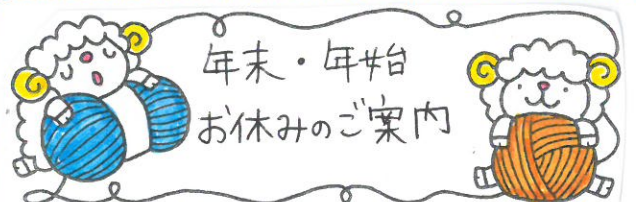 年末・年始
お休みのご案内